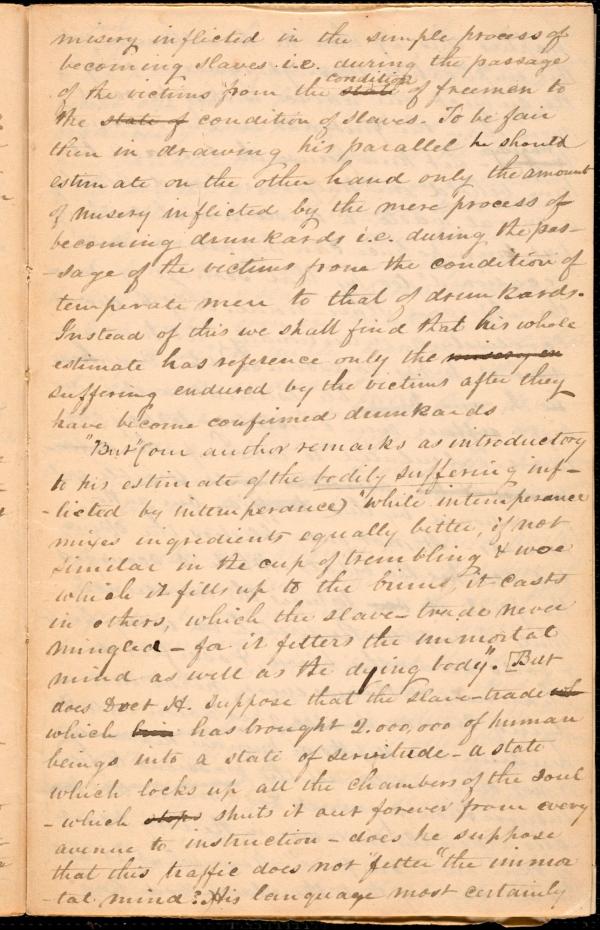 misery inflicted in the simple process of
becoming slaves i.e. during the passage
of the victims from the state condition of freemen to
the state of condition of slaves. To be fair
then in drawing his parallel he should
estimate on the other hand only the amount
of misery inflicted by the mere process of
becoming drunkards i.e. during the pas-
-sage of the victims from the condition of
temperate men to that of drunkards.
Instead of this we shall find that his whole
estimate has reference only the misery en
suffering endured by the victims after they
have become confirmed drunkards
"But" (our author remarks as introductory
to his estimate of the bodily suffering inf-
-licted by intemperance) "while intemperance
mixes ingredients equally bitter, if not
similar in the cup of trembling & woe
which it fills up to the brim, it casts
in others, which the slave-trade never
mingled - for it fetters the immortal
mind as well as the dying body". [But
does Doct H. suppose that the slave-trade
which has brought 2.000,000 of human
beings into a state of servitude - a state
which locks up all the chambers of the soul
-which stops shuts it out forever from every
avenue to instruction - does he suppose
that this traffic does not fetter "the immor
-tal mind? His language most certainly